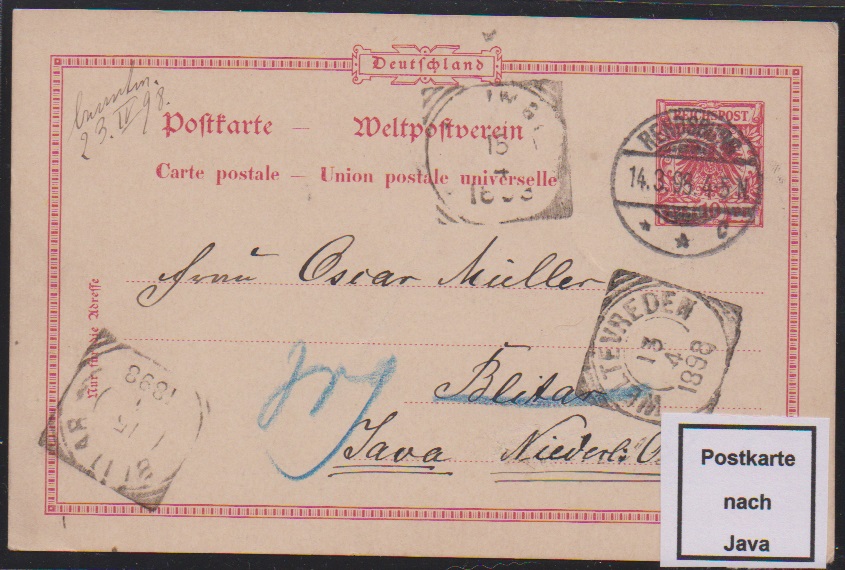 Deutschland
23. IV 98.
Postkarte — Weltpostverein
Carte postale — Union postale universelle
REICHSPOST
10
14.3.98. 4-5 N.
15
4
Frau Oscar Müller
WELTEVREDEN
13
4
1898
Nur für die Adresse
BLITAR
15
1898
Blitar
Java Niederl:
Postkarte
nach
Java